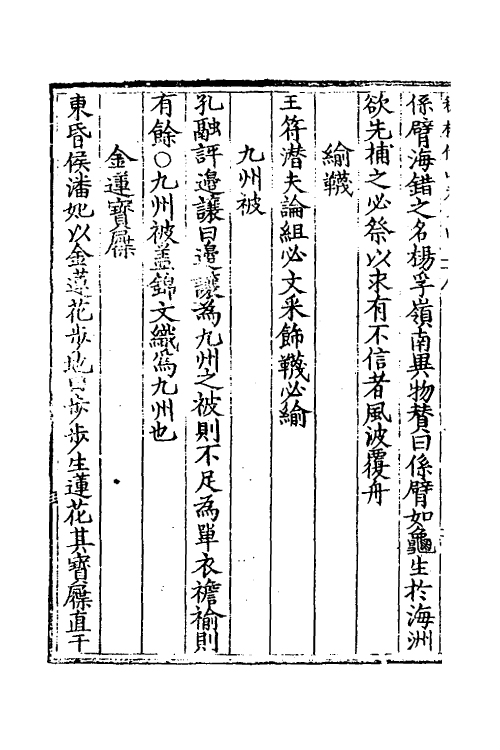 係臂海錯之名楊孚嶺南異物賛曰係臂如龜生於海洲
欲先捕之必祭以求有不信者風波覆舟
緰韈
王符潜夫論組必文采飾韈必緰
九州被
孔融評邉讓曰邉讓為九州之被則不足為單衣襜褕則
有餘○九州被盖錦文織為九州也
金蓮寳屧
東昏侯潘妃以金蓮花步地曰步步生蓮花其寳屧直千